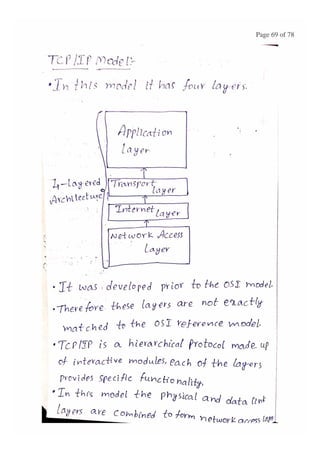 Page 69 of 78
TCP/IP Model:-
• In this model it has four layers.
Application
layer
4-layered
Architecture
Transport
layer
Internet layer
Network Access
Layer
• It was developed prior to the OSI model
• Therefore these layers are not exactly
matched to the OSI reference model.
• TCP/IP is a hierarchical protocol made up
of interactive modules, each of the layers
provides specific functionality.
• In this model the physical and data link
layers are combined to form network access layer